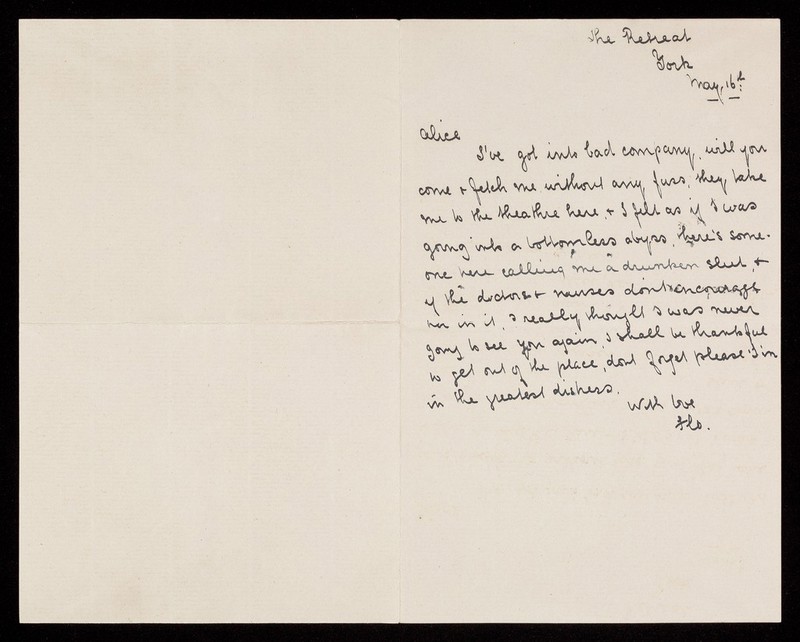 The Retreat
York
May 16th
Alice
I've got into bad company, will you
come & fetch me without any fuss, they take
me to the theathre here, & I felt as if I was
going into a bottomless abyss, there's some-
one here calling me a drunken slut, &
if the doctors & nurses don't encourage
her in it, I really thought I was never
going to see you again, I shall be thankful
to get out of the place, dont forget please I'm
in the greatest distress.
With love
Flo.